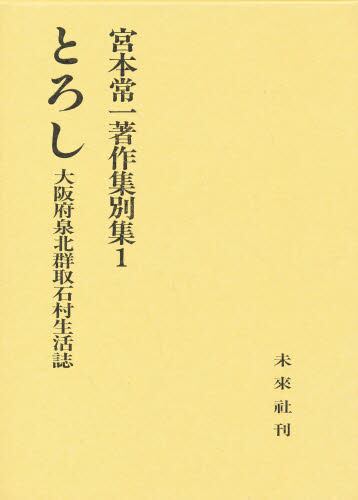 宮本常一著作集別集1
とろし
大阪府泉北群取石村生活誌
未來社刊